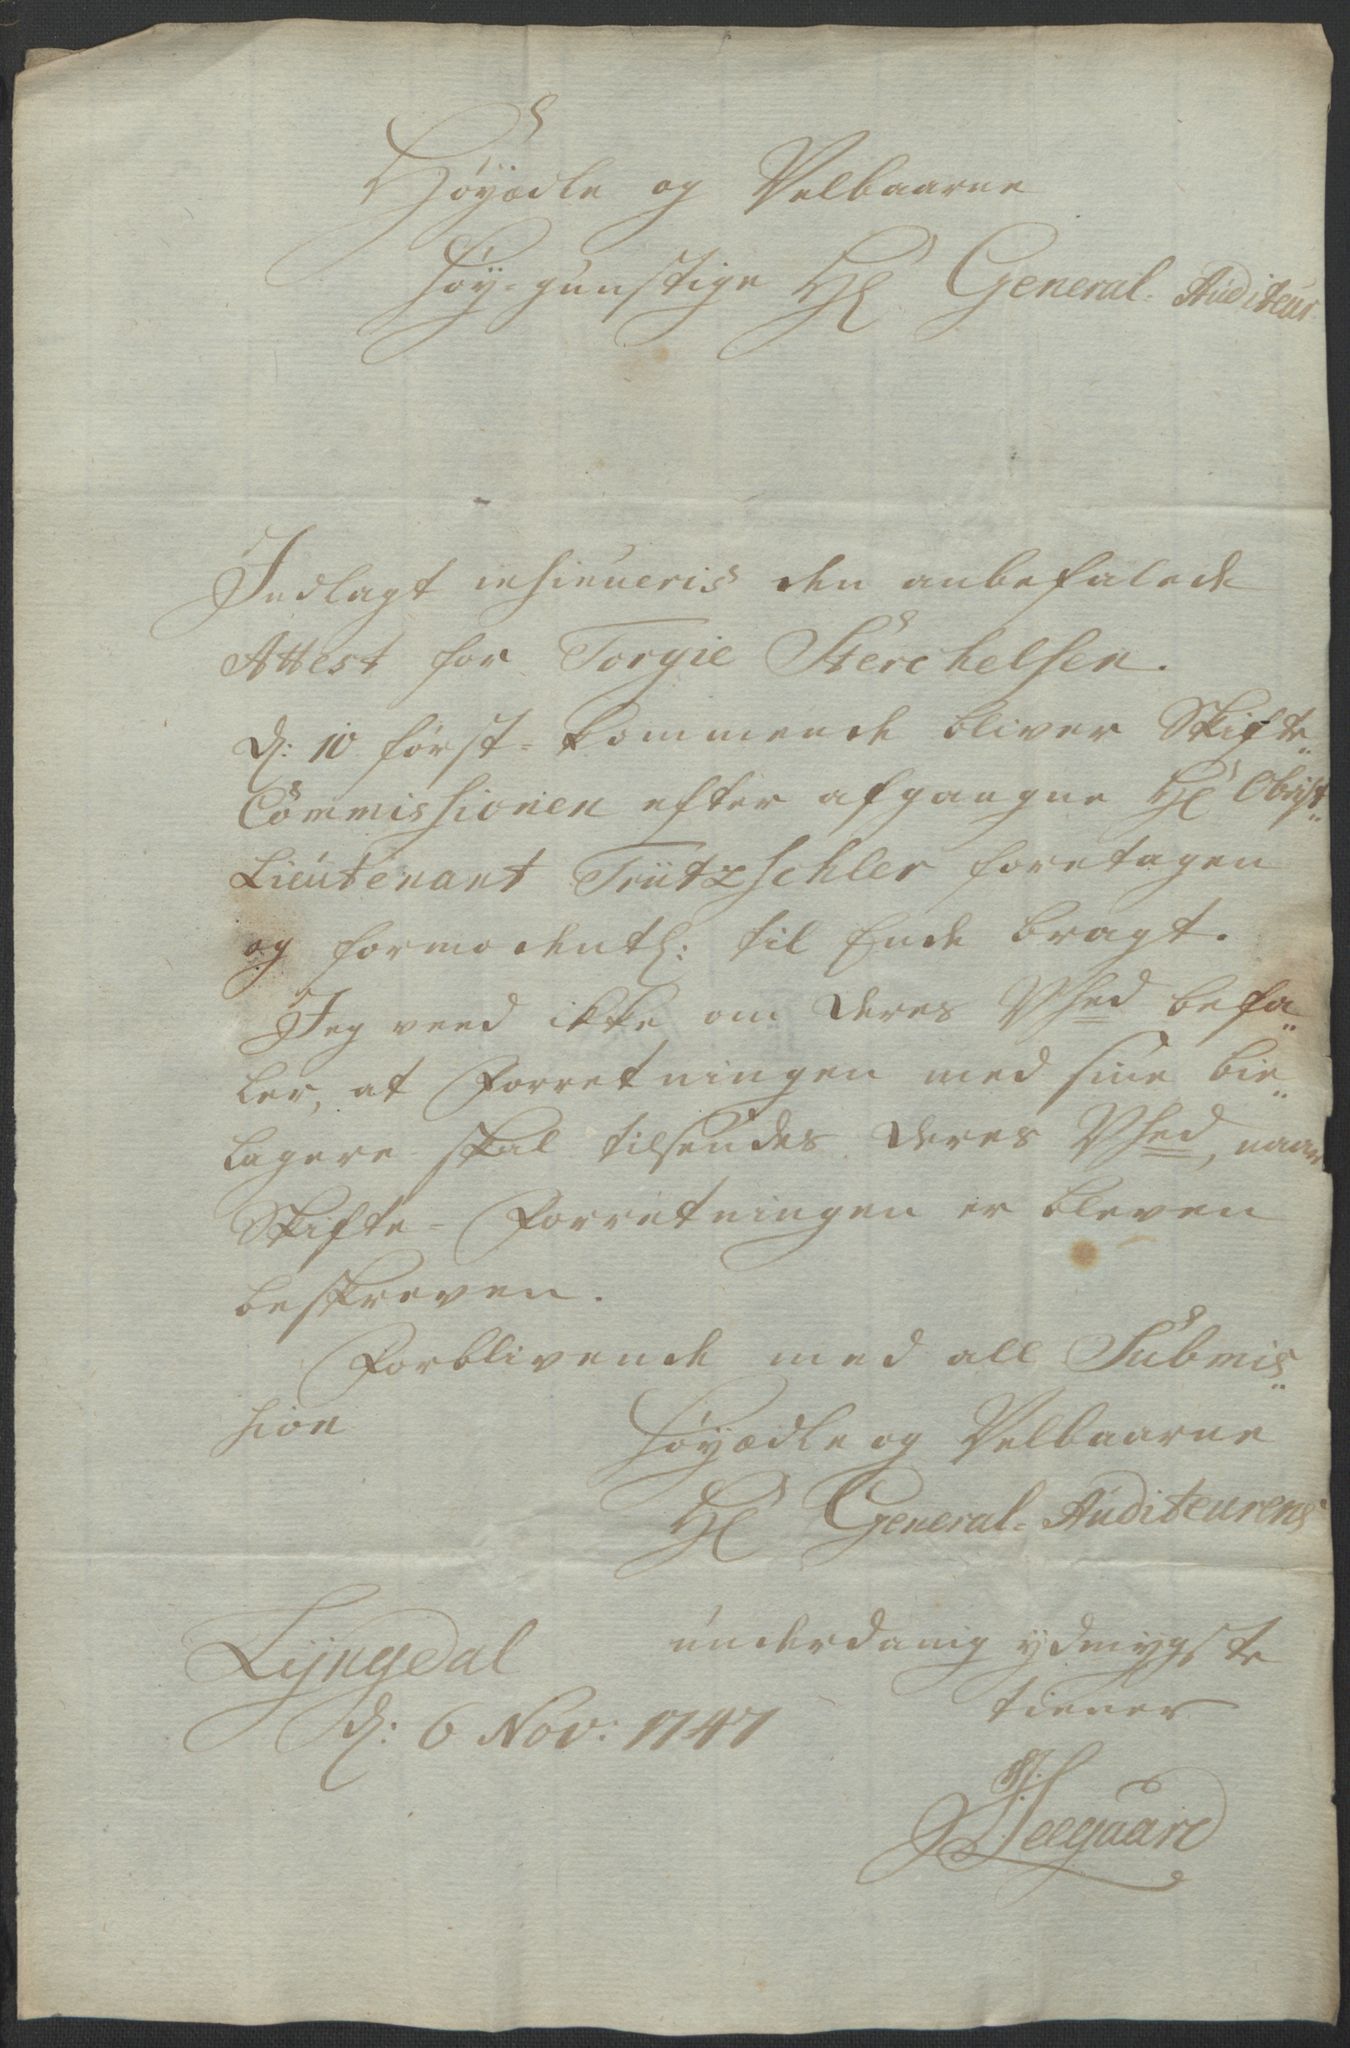 Höyædle og Velbaarne
Höy-gunstige Hr General-Auditeur
Indlagt insinueris den anbefalede
Attest for Torgie Sterchelsen.
d: 10 först-kommende bliver Skifte-
Commissionen efter afgangne Hr Obrist-
Lieutenant Trützschler foretagen
og formodentl: til Ende bragt.
Jeg veed ikke om Deres Vhed befa-
ler, at Forretningen med sine bie-
lagere skal tilsendes Deres Vhed, naar
Skifte-Forretningen er bleven
beskreven.
Forblivende med all Submis-
sion
Höyædle og Velbaarne
Hr General-Auditeurens
underdanig ydmygste
tiener
Lyngdal
d: 6 Nov: 1747
Seeguard